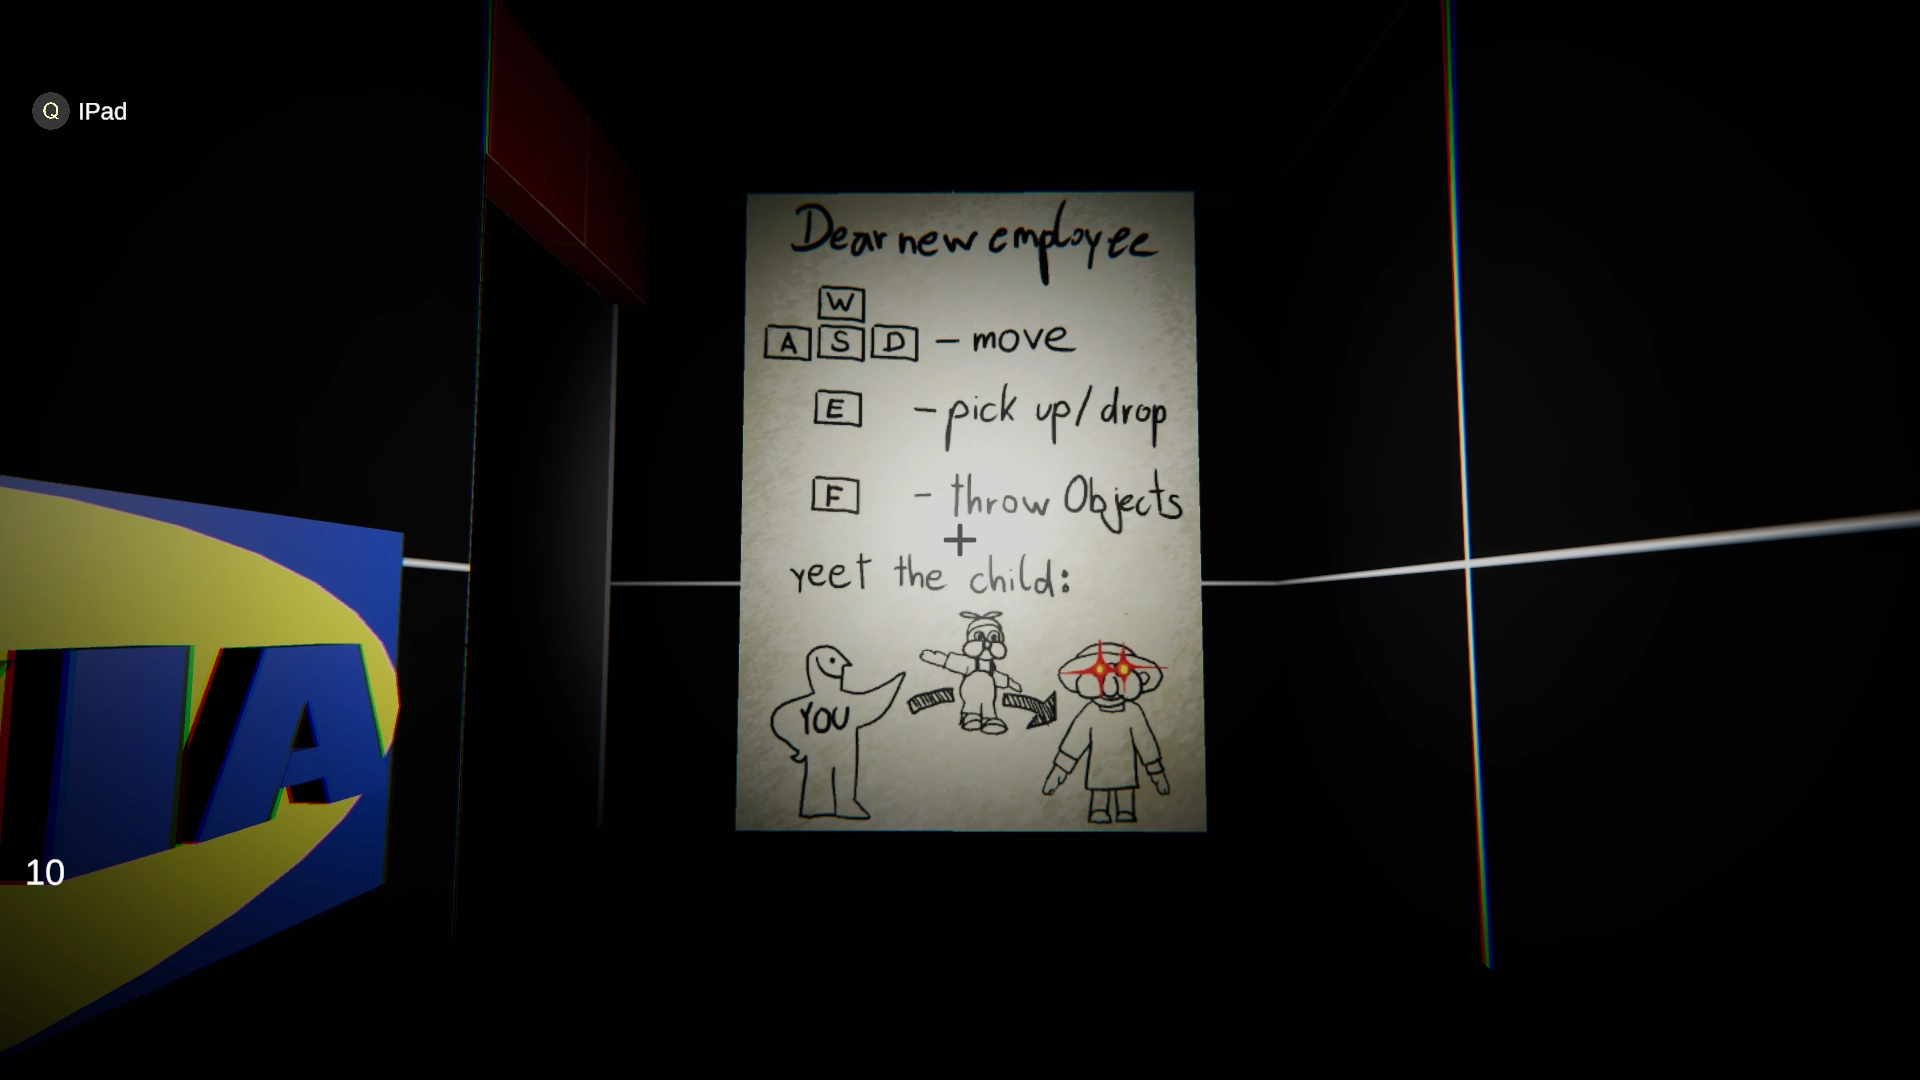 Q IPad
Dear new employee
W
A S D - move
E - pick up/drop
F - throw Objects
yeet the child:
YOU
IA
10